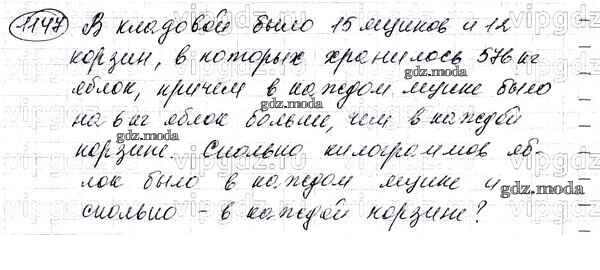 1147 В кладовой было 15 ящиков и 12
корзин, в которых хранилось 576 кг
яблок, причем в каждом ящике было
на 6 кг яблок больше, чем в каждой
корзине. Сколько килограммов яб-
лок было в каждом ящике и
сколько - в каждой корзине?
gdz.moda
gdz.moda
gdz.moda
gdz.moda
gdz.moda